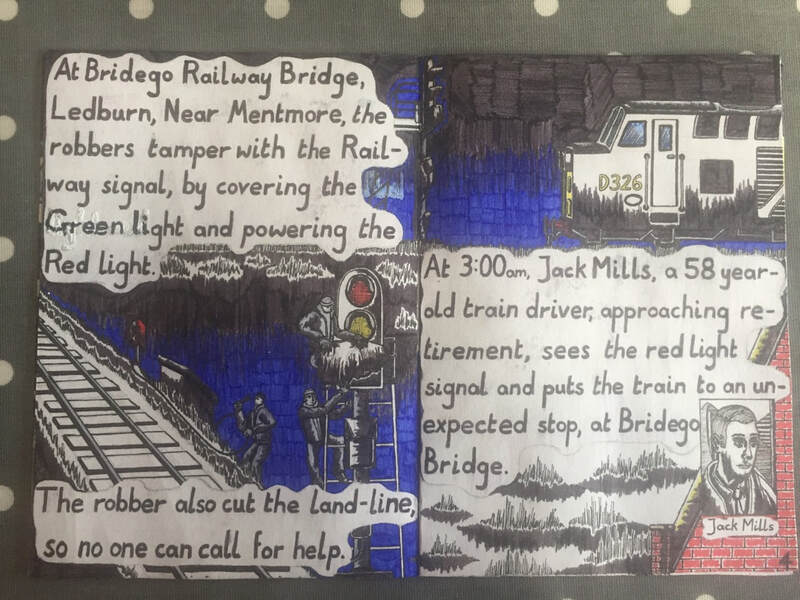 At Bridego Railway Bridge,
Ledburn, Near Mentmore, the
robbers tamper with the Rail-
way signal, by covering the
Green light and powering the
Red light.
The robber also cut the land-line,
so no one can call for help.
D326
At 3:00am, Jack Mills, a 58 year-
old train driver, approaching re-
tirement, sees the red light
signal and puts the train to an un-
expected stop, at Bridego
Bridge.
Jack Mills
4